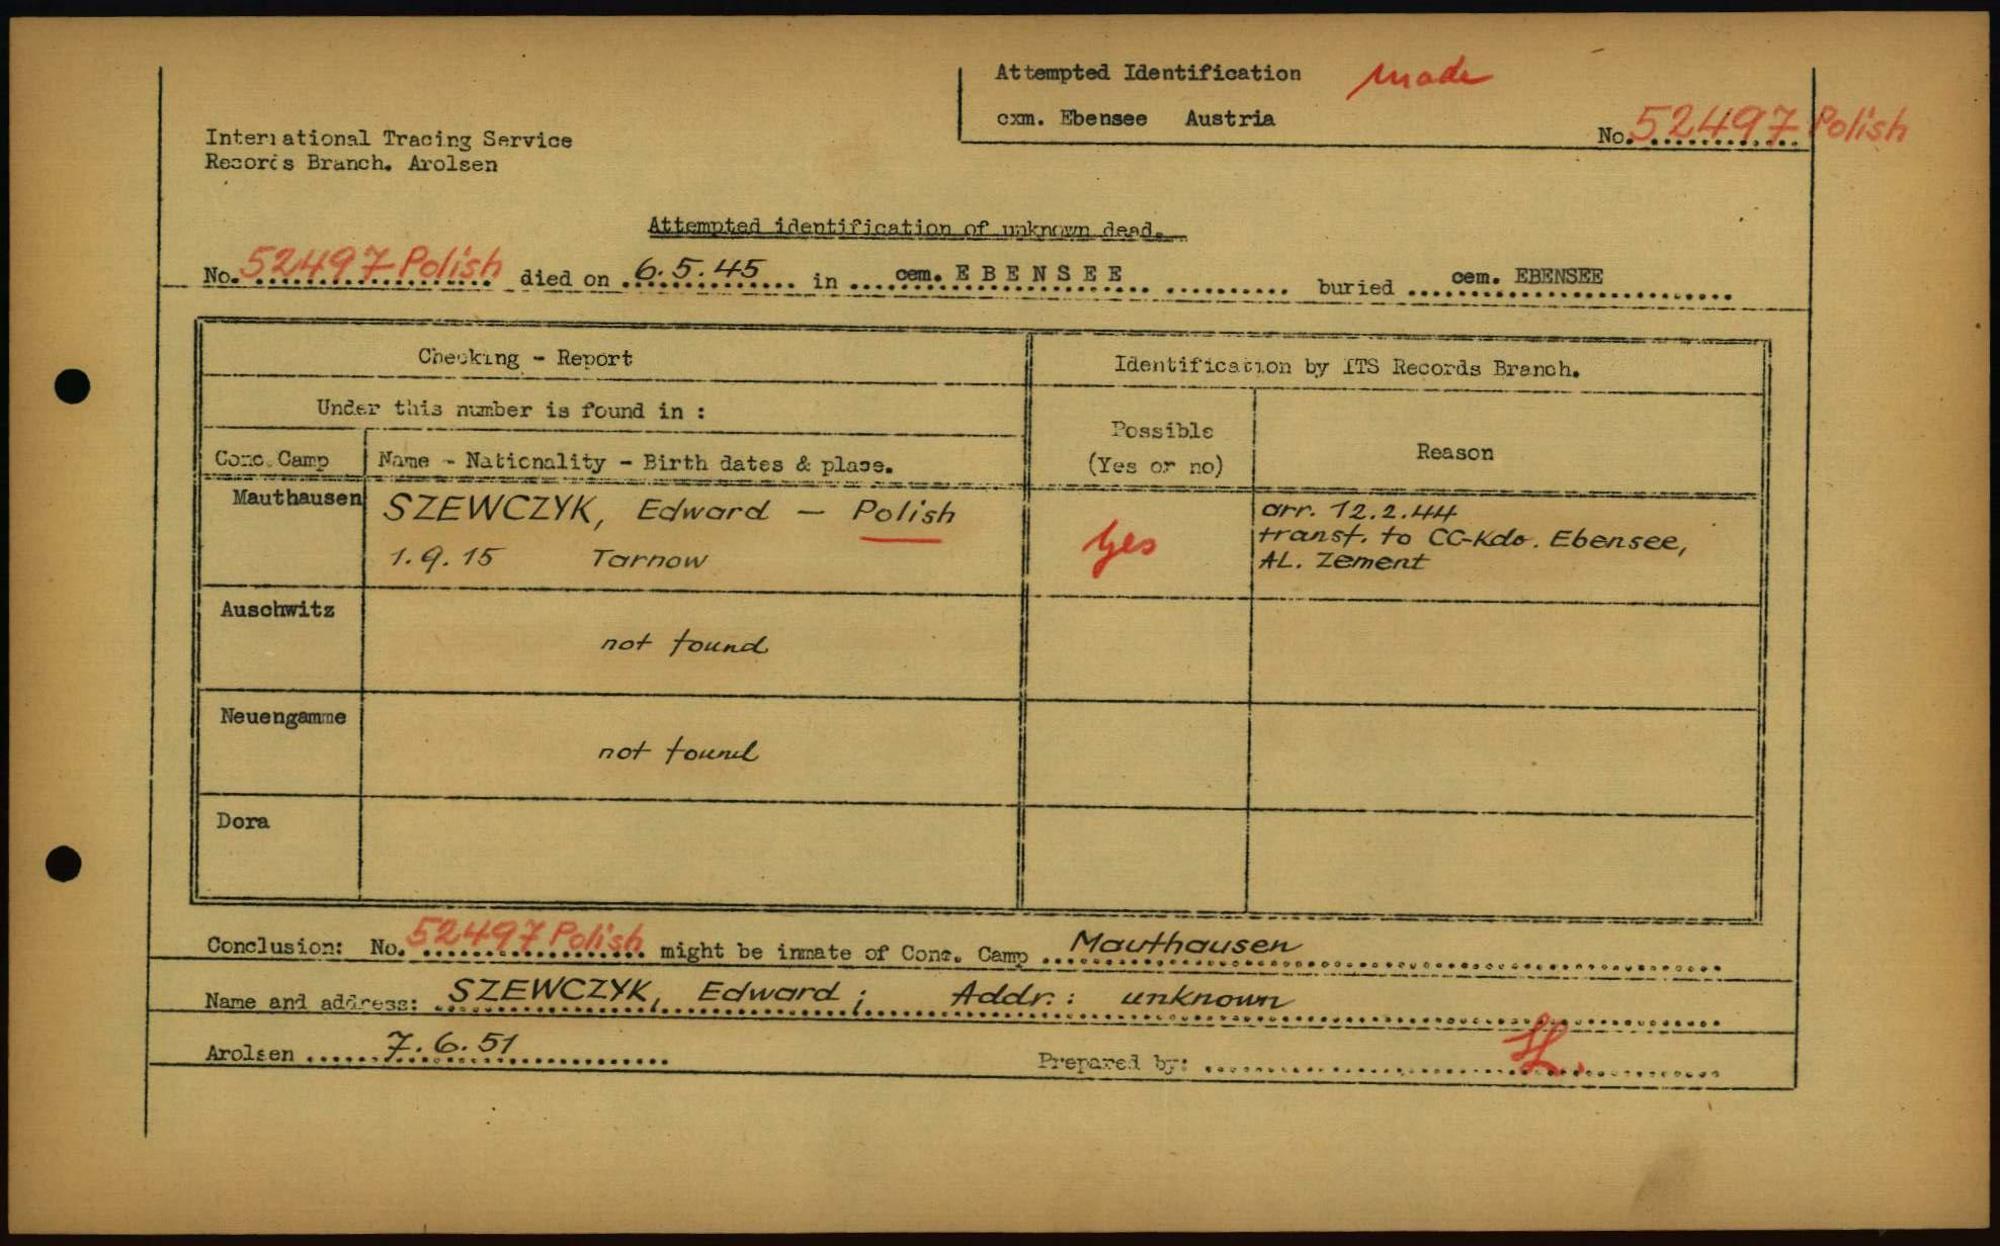 Attempted Identification made
cxm. Ebensee Austria
No. 52497 Polish
International Tracing Service
Records Branch. Arolsen
Attempted identification of unknown dead.
No. 52497 Polish died on 6.5.45 in cem. EBENSEE buried cem. EBENSEE
Checking - Report
Identification by ITS Records Branch.
Under this number is found in :
Possible
(Yes or no)
Reason
Conc. Camp
Name - Nationality - Birth dates & place.
Mauthausen
SZEWCZYK, Edward — Polish
1.9.15 Tarnow
Yes
arr. 12.2.44
transf. to CC-Kdo. Ebensee,
AL. Zement
Auschwitz
not found
Neuengamme
not found
Dora
Conclusion: No. 52497 Polish might be inmate of Conc. Camp Mauthausen
Name and address: SZEWCZYK, Edward ; Addr.: unknown
Arolsen 7.6.51
Prepared by: